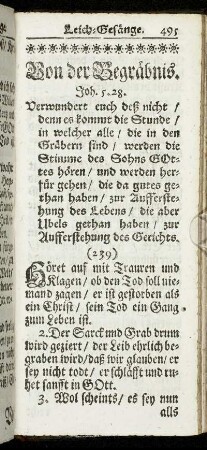 Leich-Gesänge. 495
Von der Begräbnis.
Joh. 5. 28.
Verwundert euch deß nicht /
denn es kommt die Stunde /
in welcher alle / die in den
Gräbern sind / werden die
Stimme des Sohns GOt-
tes hören / und werden her-
für gehen / die da gutes ge-
than haben / zur Aufferste-
hung des Lebens / die aber
Ubels gethan haben / zur
Aufferstehung des Gerichts.
(239)
Höret auf mit Trauren und
Klagen / ob den Tod soll nie-
mand zagen / er ist gestorben als
ein Christ / sein Tod ein Gang
zum Leben ist.
2. Der Sarck und Grab drum
wird geziert / der Leib ehrlich be-
graben wird / daß wir glauben / er
sey nicht todt / er schläfft und ru-
het sanfft in GOtt.
3. Wol scheints / es sey nun
alls